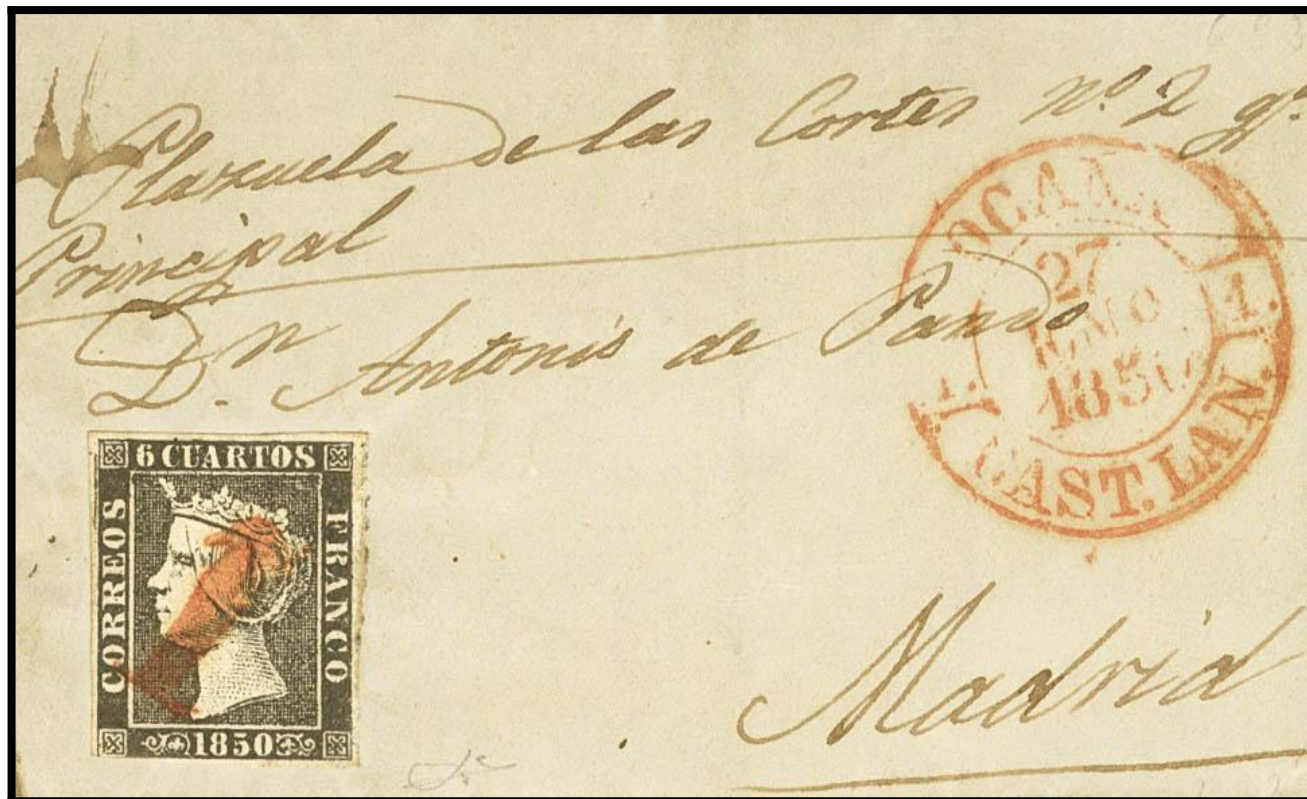 Plazuela de las Cortes nº 2 qº
Principal
Dn. Antonio de Pando
OCAÑA
27
ENO
1850
CAST. LAN.
6 CUARTOS
CORREOS
FRANCO
1850
Madrid